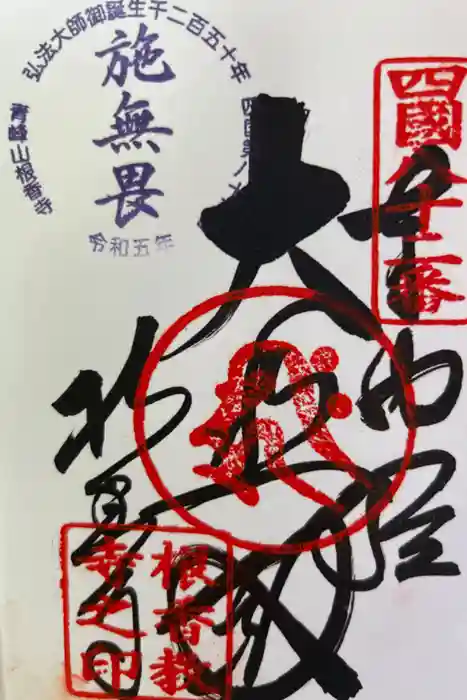 弘法大師御誕生千二百五十年
四国第八十
青峰山根香寺
施無畏
令和五年
四國八十二番
奉納経
大
根香寺
根香教
寺之印